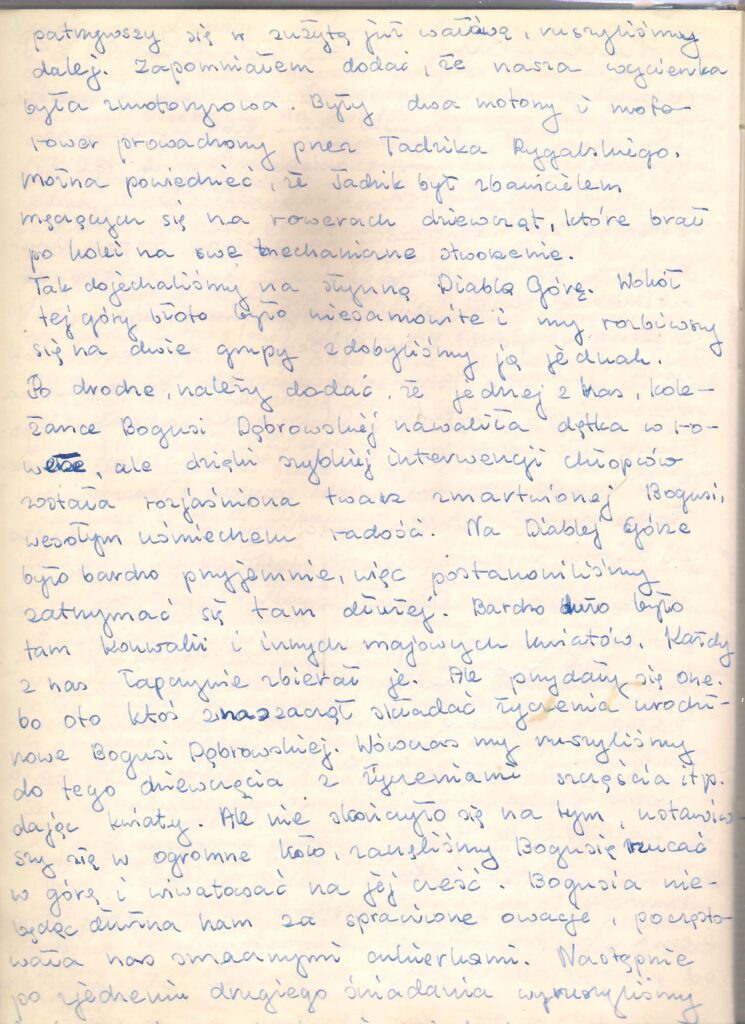 patrzywszy się w zużytą już wałówę, ruszyliśmy
dalej. Zapomniałem dodać, że nasza wycieczka
była zmotoryzowa. Były dwa motory i moto-
rower prowadzony przez Tadzika Rygalskiego.
Można powiedzieć, że Tadzik był zbawicielem
męczących się na rowerach dziewcząt, które brał
po kolei na swe mechaniczne stworzenie.
Tak dojechaliśmy na słynną Diablą Górę. Wokół
tej góry błoto było niesamowite i my rozbiwszy
się na dwie grupy zdobyliśmy ją jednak.
Po drodze, należy dodać, że jednej z nas, kole-
żance Bogusi Dąbrowskiej nawaliła dętka w ro-
werze, ale dzięki szybkiej interwencji chłopców
została rozjaśniona twarz zmartwionej Bogusi,
wesołym uśmiechem radości. Na Diablej Górze
było bardzo przyjemnie, więc postanowiliśmy
zatrzymać się tam dłużej. Bardzo dużo było
tam konwalii i innych majowych kwiatów. Każdy
z nas łapczywie zbierał je. Ale przydały się one.
bo oto ktoś z nas zaczął składać życzenia urodzi-
nowe Bogusi Dąbrowskiej. Wówczas my ruszyliśmy
do tego dziewczęcia z życzeniami szczęścia itp.
dając kwiaty. Ale nie skończyło się na tym, ustawiw-
szy się w ogromne koło, zaczęliśmy Bogusię rzucać
w górę i wiwatować na jej cześć. Bogusia nie-
będąc dłużna nam za sprawione owacje, poczęsto-
wała nas smacznymi cukierkami. Następnie
po zjedzeniu drugiego śniadania wyruszyliśmy